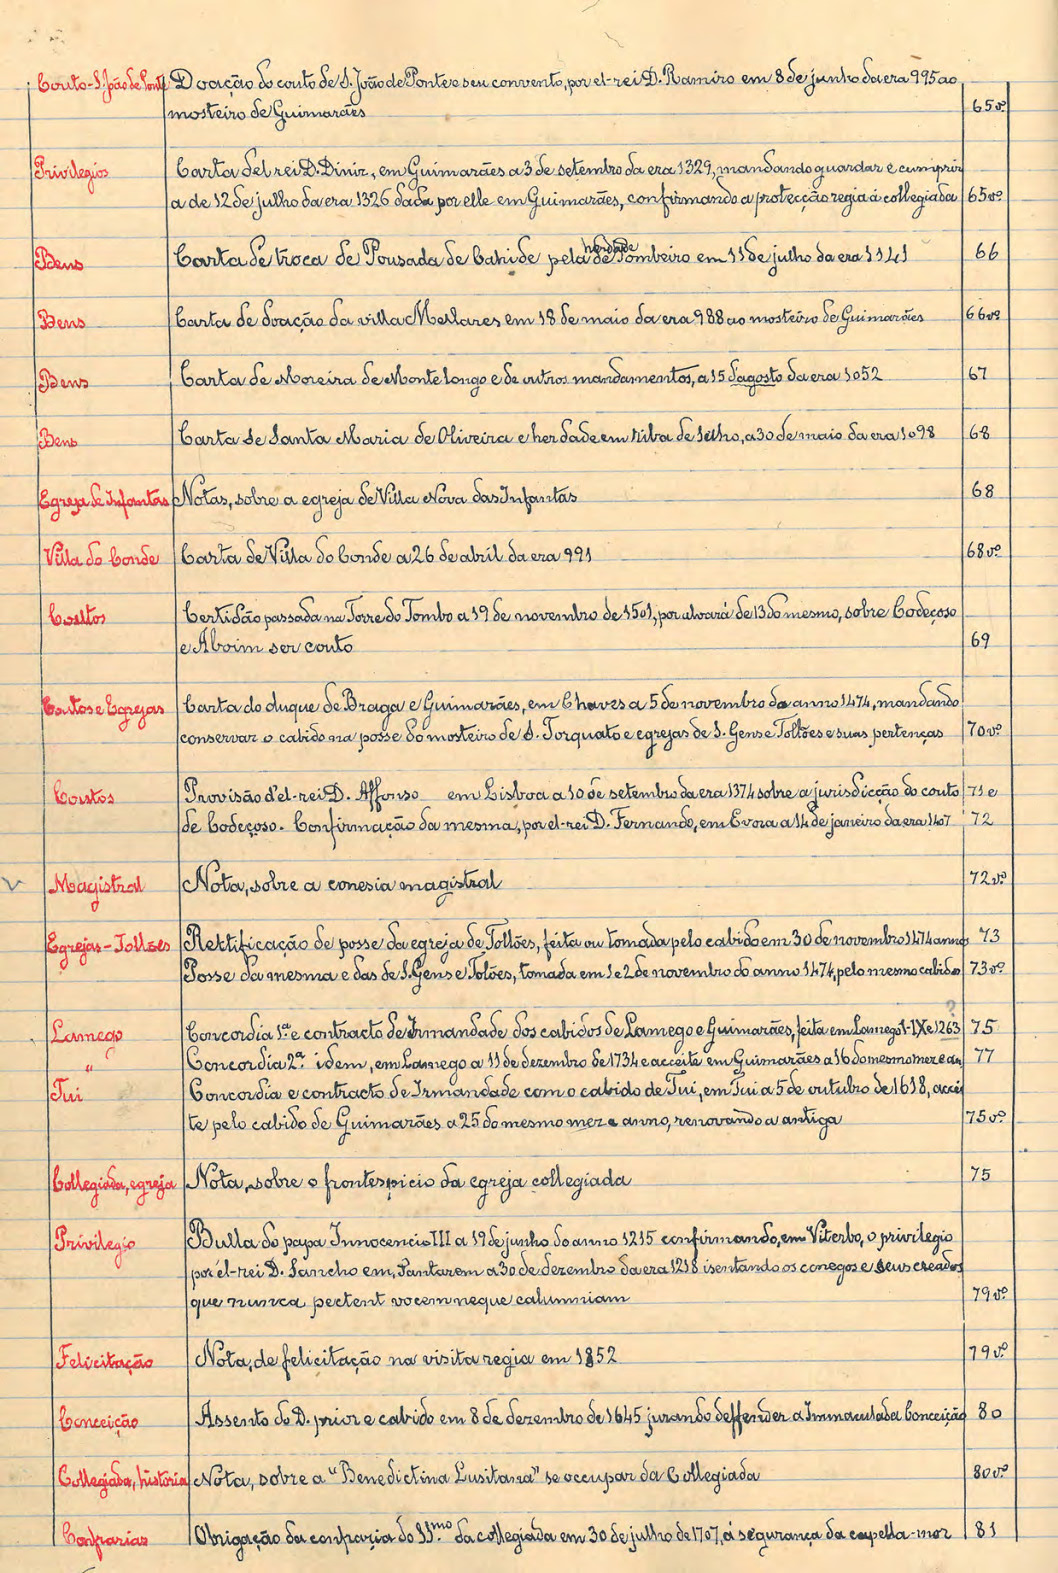 Couto-S. João de Ponte Doação do couto de S. João de Ponte e seu convento, por el-rei D. Ramiro em 8 de junho da era 995 ao
mosteiro de Guimarães 65vº
Privilegios Carta del rei D. Diniz, em Guimarães a 3 de setembro da era 1329, mandando guardar e cumprir
a de 12 de julho da era 1326 dada por elle em Guimarães, confirmando a protecção regia á collegiada 65vº
Bens Carta de troca de Pousada de Cahide pela herdade de Pombeiro em 11 de julho da era 1141 66
Bens Carta de doação da villa Mellares em 18 de maio da era 988 ao mosteiro de Guimarães 66vº
Bens Carta de Moreira de Montelongo e de outros mandamentos, a 15 d'agosto da era 1052 67
Bens Carta de Santa Maria de Oliveira e herdade em riba de Selho, a 30 de maio da era 1098 68
Egreja de Infantas Notas, sobre a egreja de Villa Nova das Infantas 68
Villa do Conde Carta de Villa do Conde a 26 de abril da era 991 68vº
Coutos Certidão passada na Torre do Tombo a 19 de novembro de 1501, por alvará de 13 do mesmo, sobre Codeçoso
e Aboim ser couto 69
Coutos e Egrejas Carta do duque de Braga e Guimarães, em Chaves a 5 de novembro do anno 1474, mandando
conservar o cabido na posse do mosteiro de S. Torquato e egrejas de S. Gens e Tollões e suas pertenças 70vº
Coutos Provisão d'el-rei D. Affonso em Lisboa a 10 de setembro da era 1374 sobre a jurisdicção do couto 71 e
de Codeçoso. Confirmação da mesma, por el-rei D. Fernando, em Evora a 14 de janeiro da era 1407 72
Magistral Nota, sobre a conesia magistral 72vº
Egrejas-Tollões Rettificação de posse da egreja de Tollões, feita ou tomada pelo cabido em 30 de novembro 1474 anno 73
Posse da mesma e das de S. Gens e Tolões, tomada em 1 e 2 de novembro do anno 1474, pelo mesmo cabido 73vº
Lamego Concordia 1ª e contracto de Irmandade dos cabidos de Lamego e Guimarães, feita em Lamego 1-IX e 1263 75
" Concordia 2ª idem, em Lamego a 11 de dezembro de 1734 e acceite em Guimarães a 16 do mesmo mez e an. 77
Tui Concordia e contracto de Irmandade com o cabido de Tui, em Tui a 5 de outubro de 1618, accei
te pelo cabido de Guimarães a 25 do mesmo mez e anno, renovando a antiga 75vº
Collegiada, egreja Nota, sobre o frontespicio da egreja collegiada 75
Privilegio Bulla do papa Innocencio III a 19 de junho do anno 1215 confirmando, em Viterbo, o privilegio
por el-rei D. Sancho em Santarem a 30 de dezembro da era 1218 isentando os conegos e seus creados
que nunca pectent vocem neque calumniam 79vº
Felicitação Nota, de felicitação na visita regia em 1852 79vº
Conceição Assento do D. prior e cabido em 8 de dezembro de 1645 jurando deffender a Immaculada Conceição 80
Collegiada, historia Nota, sobre a "Benedictina Lusitana" se occupar da Collegiada 80vº
Confrarias Obrigação da confraria do SSmo. da collegiada em 30 de julho de 1707, á segurança da capella-mor 81